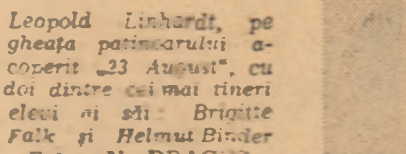 Leopold Linhardt, pe
gheața patinoarului a-
coperit „23 August“, cu
doi dintre cei mai tineri
elevi ai săi: Brigitte
Falk și Helmut Binder